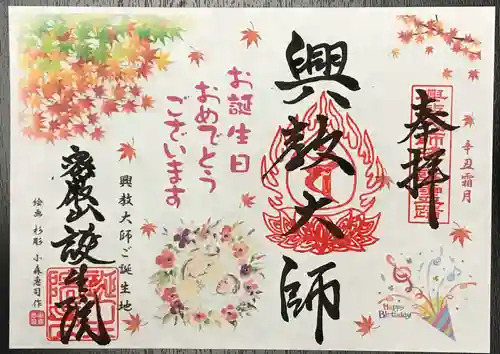 奉拝
辛丑霜月
興教大師
お誕生日
おめでとう
ございます
興教大師ご誕生地
密嚴山誕生院
絵画 杉彫 小森恵司作
Happy
Birthday